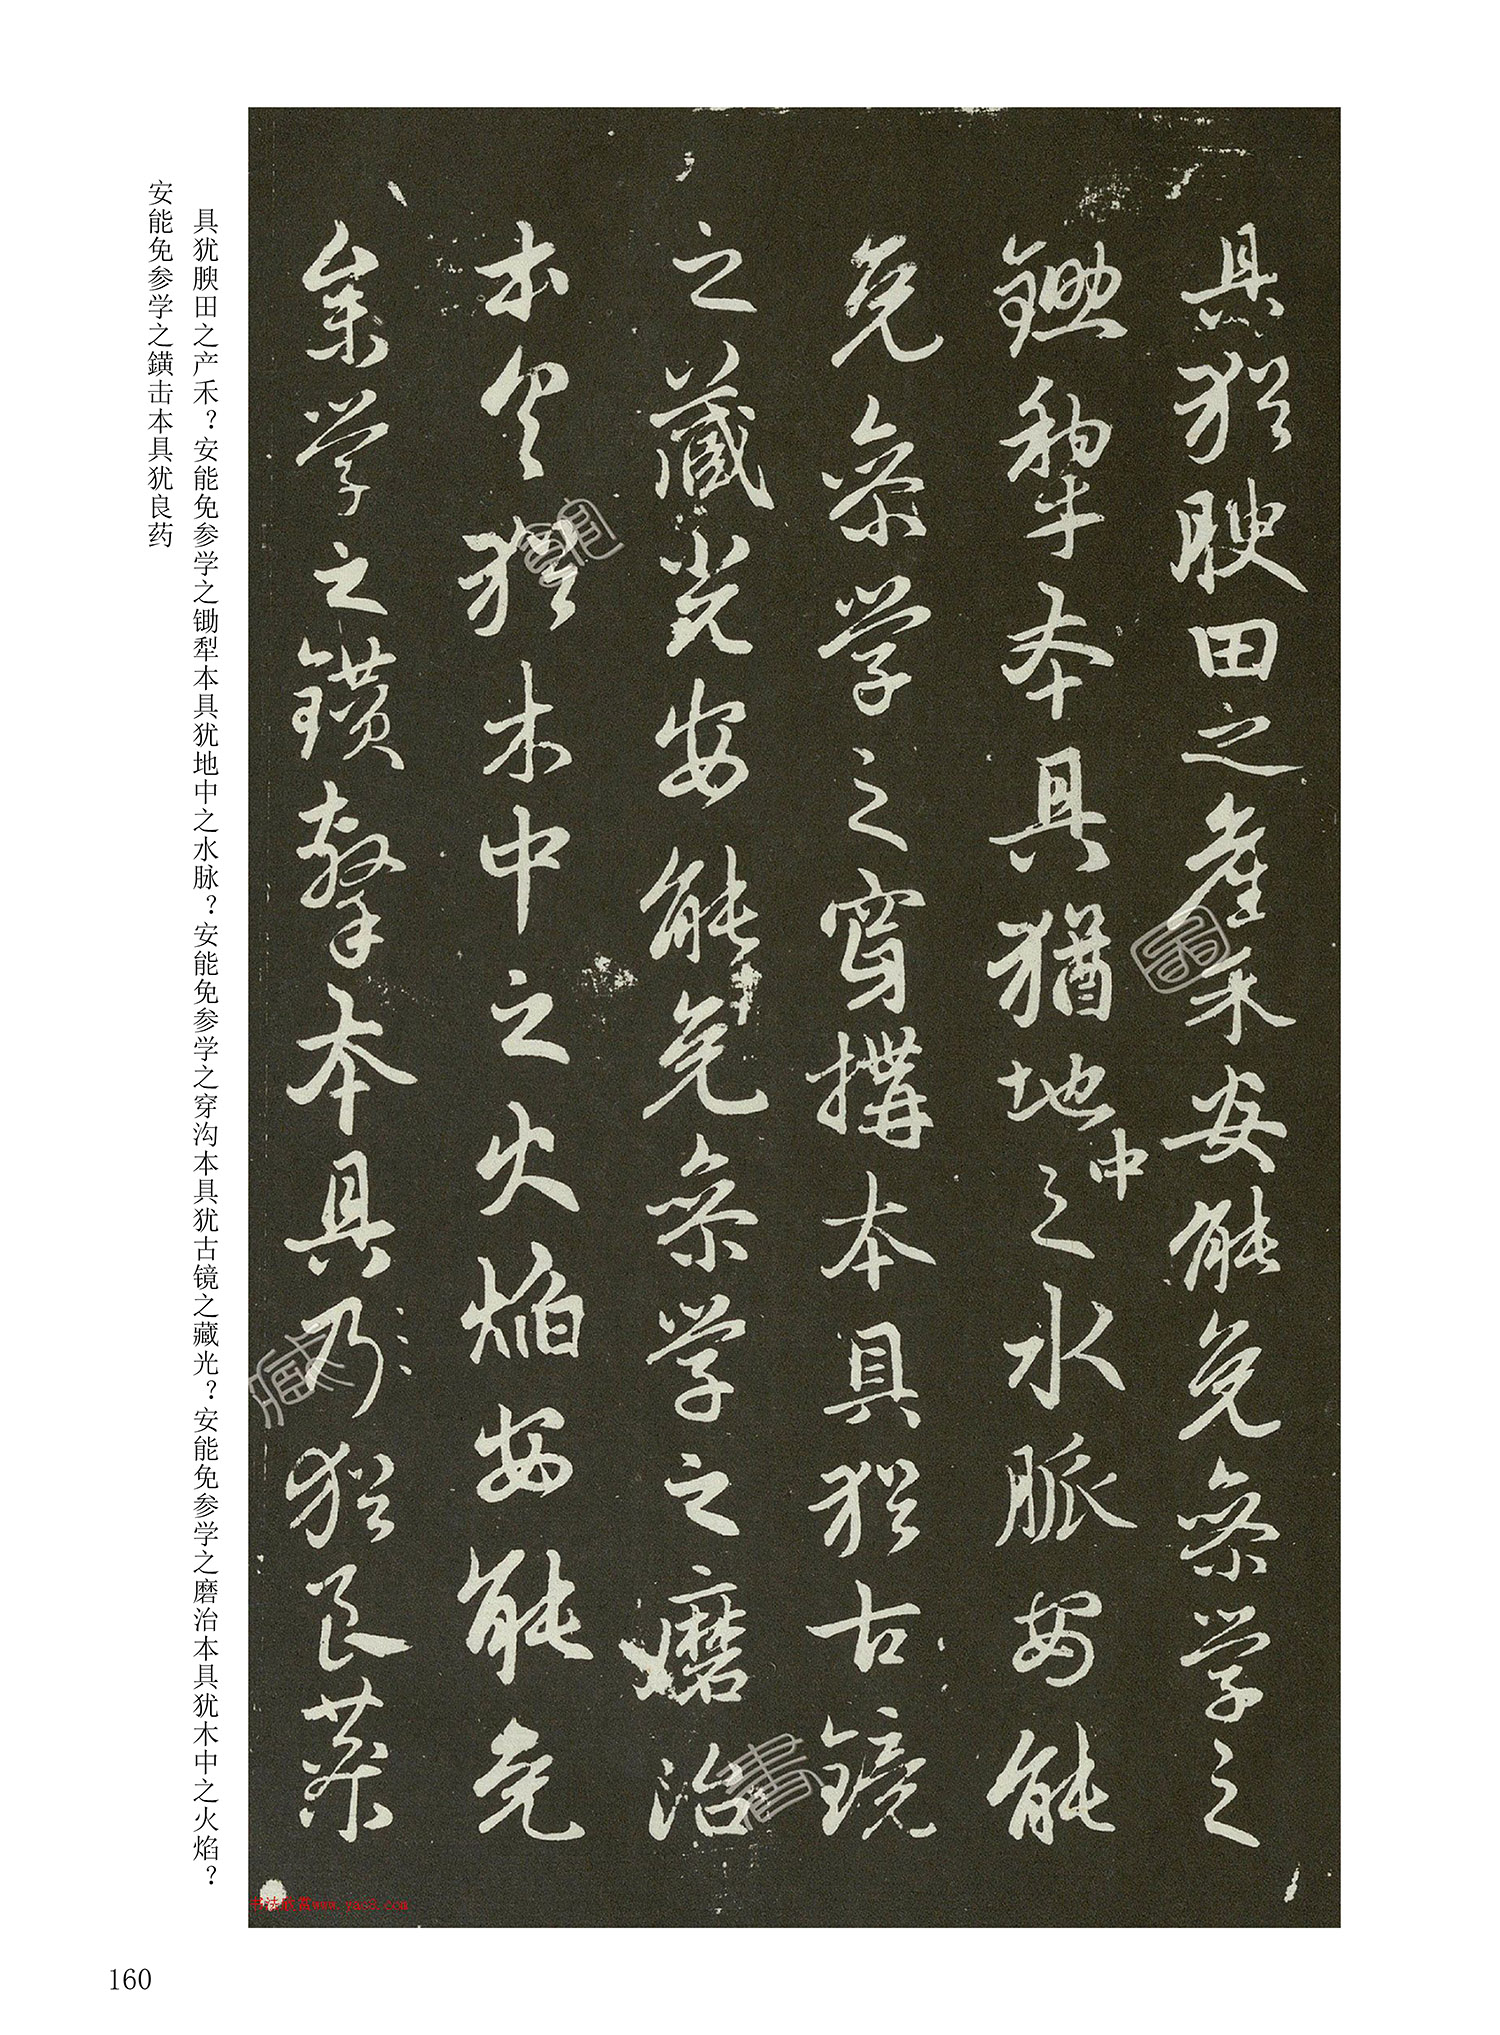 具犹腴田之產禾安能免叅学之
鋤犁本具猶地中之水脈安能
免叅学之穿搆本具犹古鏡
之藏光安能免叅学之磨治
本具猶木中之火焰安能免
叅学之鑚擊本具乃犹良藥
具犹腴田之产禾？安能免参学之锄犁本具犹地中之水脉？安能免参学之穿沟本具犹古镜之藏光？安能免参学之磨治本具犹木中之火焰？
安能免参学之鐄击本具犹良药
书法欣赏www.yac8.com
160